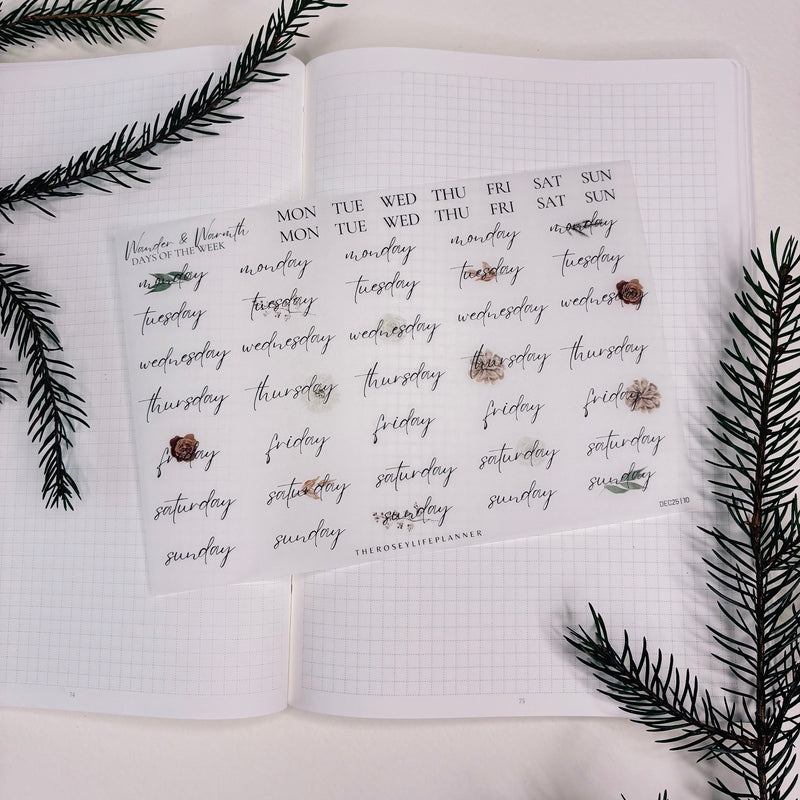 Wander & Warmth
DAYS OF THE WEEK
MON TUE WED THU FRI SAT SUN
MON TUE WED THU FRI SAT SUN
monday monday monday monday monday
tuesday tuesday tuesday tuesday tuesday
wednesday wednesday wednesday wednesday wednesday
thursday thursday thursday thursday thursday
friday friday friday friday friday
saturday saturday saturday saturday saturday
sunday sunday sunday sunday sunday
THEROSEYLIFEPLANNER
DEC25|10
74
75